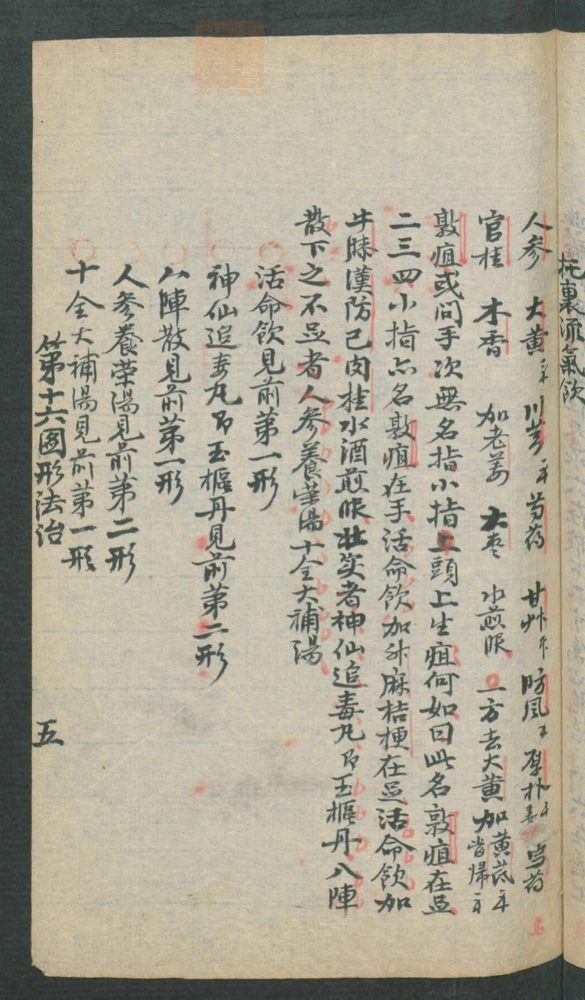 托裏流氣飲
人參 大黃 川芎 芍药 甘艸 防風 厚朴 烏药
官桂 木香 加老姜 大枣 水煎服 一方去大黃加黃茋 當歸
敦疽或问手次無名指小指上頭上生疽何如曰此名敦疽在足
二三四小指亦名敦疽在手活命飲加升麻桔梗在足活命飲加
牛膝漢防己肉桂水酒煎服壯实者神仙追毒丸即玉樞丹八陣
散下之不足者人參養荣湯十全大補湯
活命飲見前第一形
神仙追毒丸即玉樞丹見前第二形
八陣散見前第一形
人參養荣湯見前第二形
十全大補湯見前第一形
第十六圖形法治 五